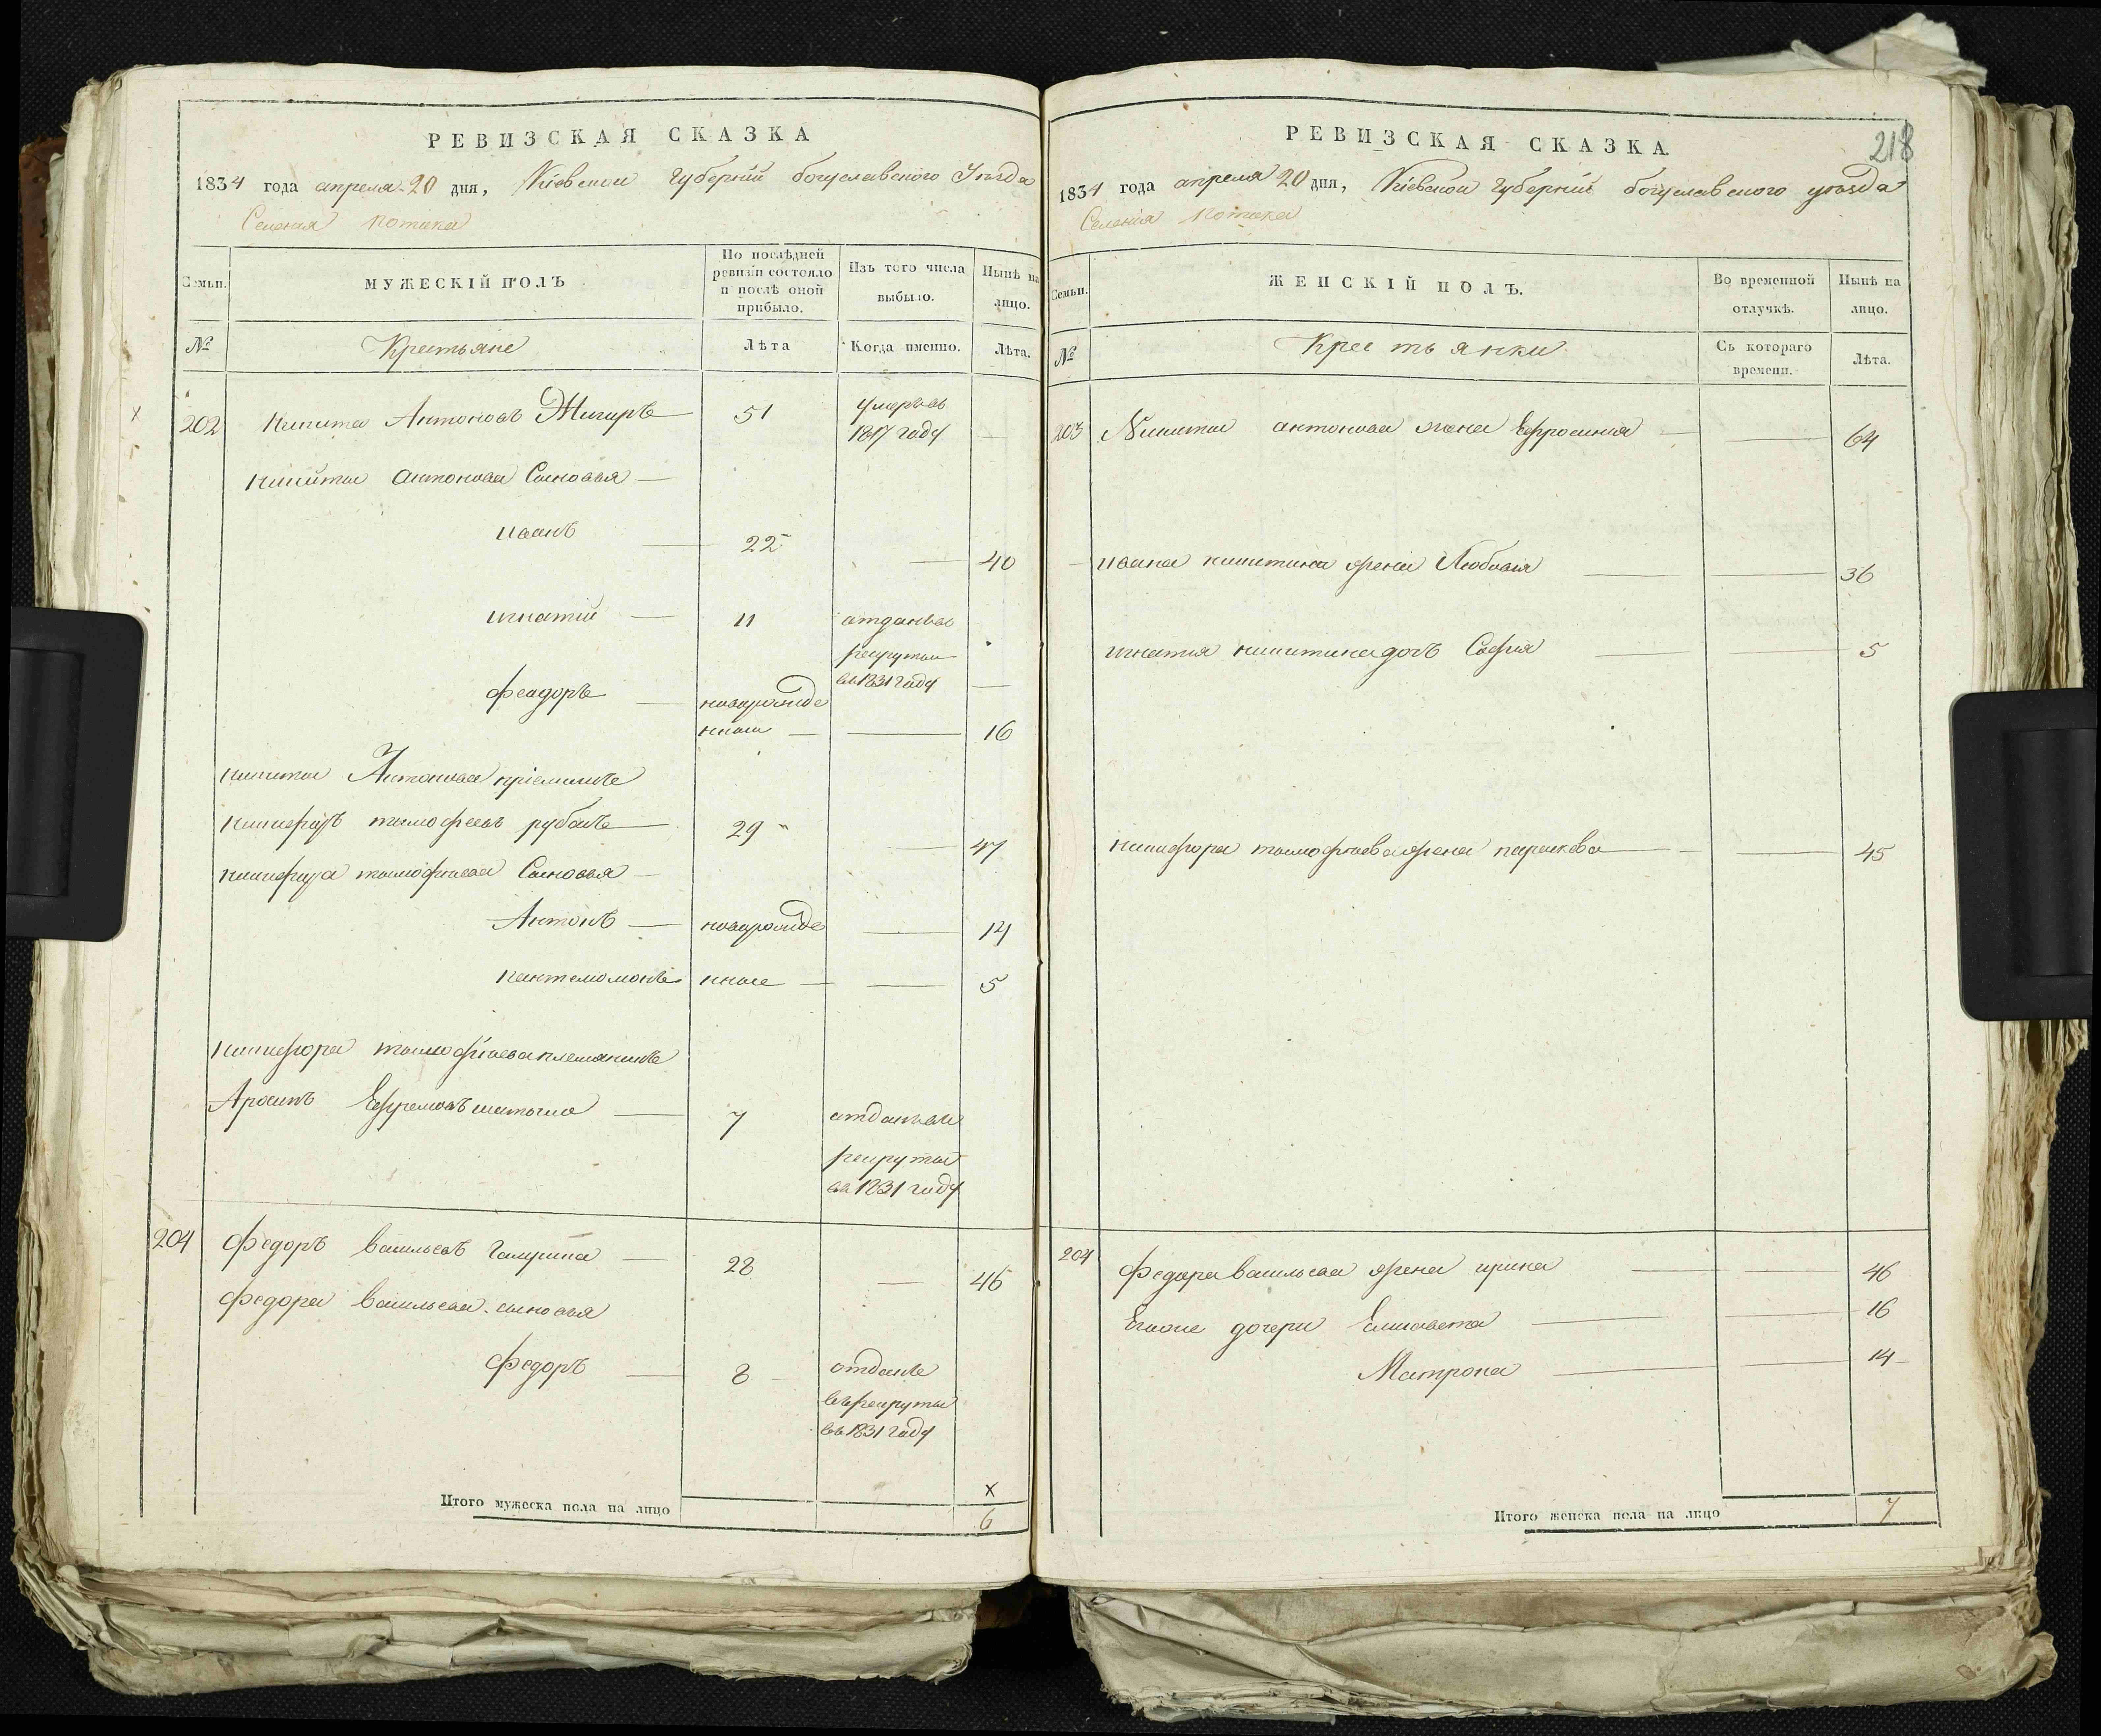 РЕВИЗСКАЯ СКАЗКА
1834 года апреля 20 дня, Кіевской Губерніи богуславского Уезда
Селенія Потока
Семьи.
МУЖЕСКІЙ ПОЛЪ
По послѣдней ревизіи состояло и послѣ оной прибыло.
Изъ того числа выбыло.
Нынѣ на лицо.
№
Крестьяне
Лѣта
Когда именно.
Лѣта.
202 Никита Антоновъ 51 умеръ въ 1817 году —
Никиты Антонова Сыновья —
иванъ — 22 — 40
игнатій — 11 отданъ въ рекруты въ 1831 году —
феодоръ — новорожденный — — 16
никиты Антонова пріемышъ
никифоръ тимофеевъ рубанъ — 29 — 47
никифора тимофѣева Сыновья —
Антонъ — новорожде — 14
пантелимонъ нные — — 5
никифора тимофѣева племянникъ
Ефремовъ — 7 отданъ въ рекруты въ 1831 году
204 Федоръ васильевъ — 28 — 45
Федора васильева сыновья
Федоръ — 8 отданъ въ рекруты въ 1831 году
х
Итого мужеска пола на лицо 6
218
РЕВИЗСКАЯ СКАЗКА.
1834 года апреля 20 дня, Кіевской Губерніи богуславского уезда
Селенія Потока
Семьи.
ЖЕНСКІЙ ПОЛЪ.
Во временной отлучкѣ.
Нынѣ на лицо.
№
Крестьянки
Съ котораго времени.
Лѣта.
203 Никиты антонова жена Ефросинія — — 64
ивана никитина жена — — 36
игнатія никитина дочь Софія — — 5
никифора тимофѣева жена параскева — — 45
204 Федора васильева жена ирина — — 46
Егоже дочери Елисавета — — 16
Матрона — — 14
Итого женска пола на лицо 7